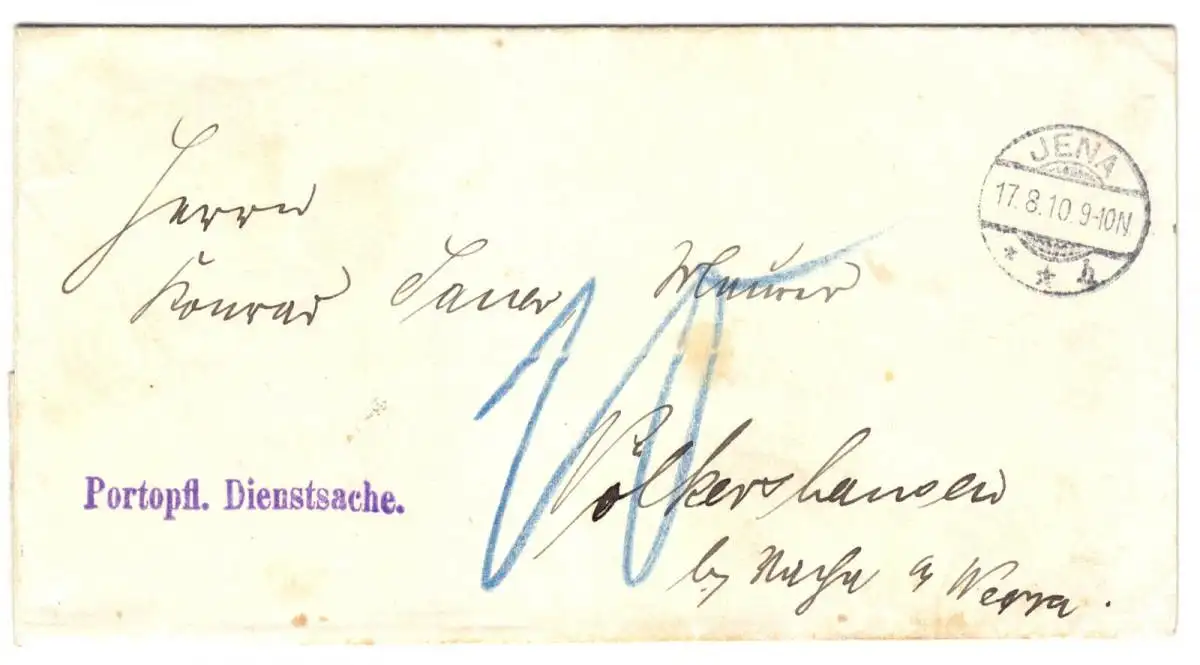 JENA
17.8.10.9-10N
* * h
Herrn
Konrad Sauer Maurer
10
Völkershausen
Portopfl. Dienstsache.
by Vacha a/ Werra.